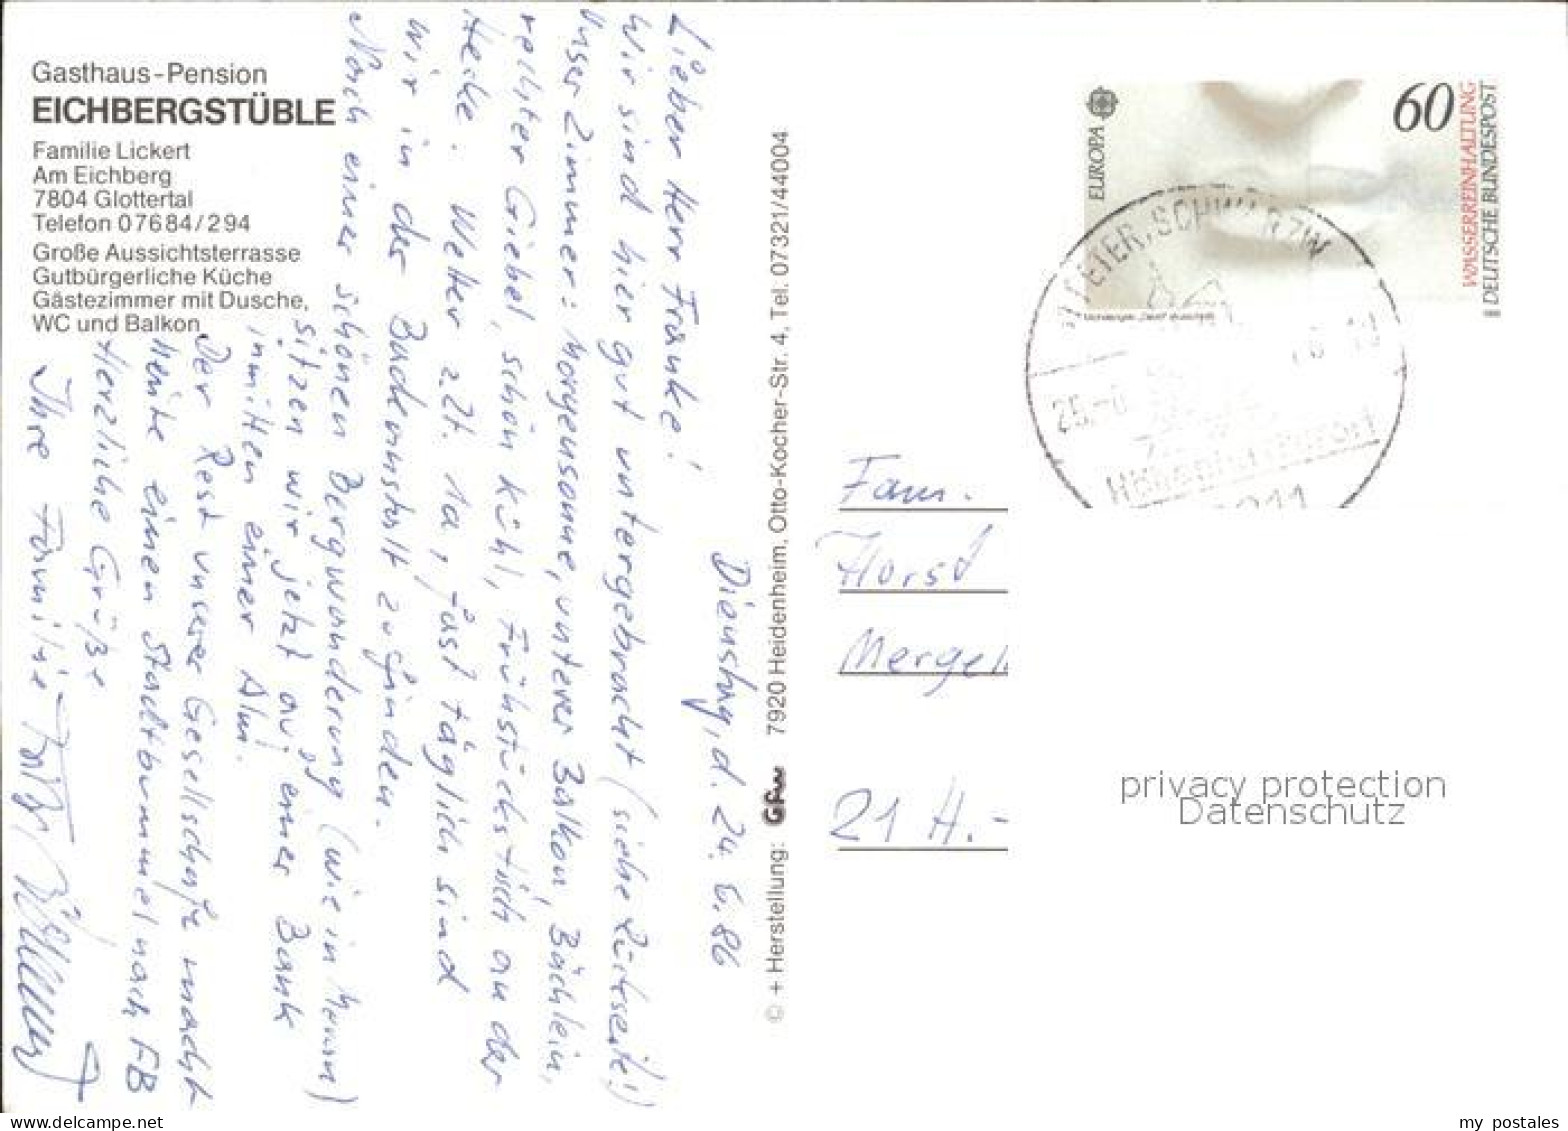 Gasthaus-Pension
EICHBERGSTÜBLE
Familie Lickert
Am Eichberg
7804 Glottertal
Telefon 07684/294
Große Aussichtsterrasse
Gutbürgerliche Küche
Gästezimmer mit Dusche,
WC und Balkon
Dienstag, d. 24.6.86
Lieber Herr Franke!
Wir sind hier gut untergebracht (siehe Rückseite!)
Unser Zimmer: Morgensonne, unterer Balkon, Bächlein,
rechter Giebel, schön kühl, Frühstückstisch an der
Hecke. Wetter z.Zt. 1a, fast täglich sind
wir in der Badeanstalt zu finden.
Nach einer schönen Bergwanderung (wie in Meran)
sitzen wir jetzt auf einer Bank
inmitten einer Alm.
Der Rest unserer Gesellschaft macht
heute einen Stadtbummel nach FB
Herzliche Grüße
Ihre Familie
© + Herstellung: GFW 7920 Heidenheim, Otto-Kocher-Str. 4, Tel. 07321/44004
EUROPA
60
WASSERREINHALTUNG
DEUTSCHE BUNDESPOST
ST. PETER, SCHWARZW
7811
Fam.
Horst
Mergel
21 H.-
privacy protection
Datenschutz
my postales